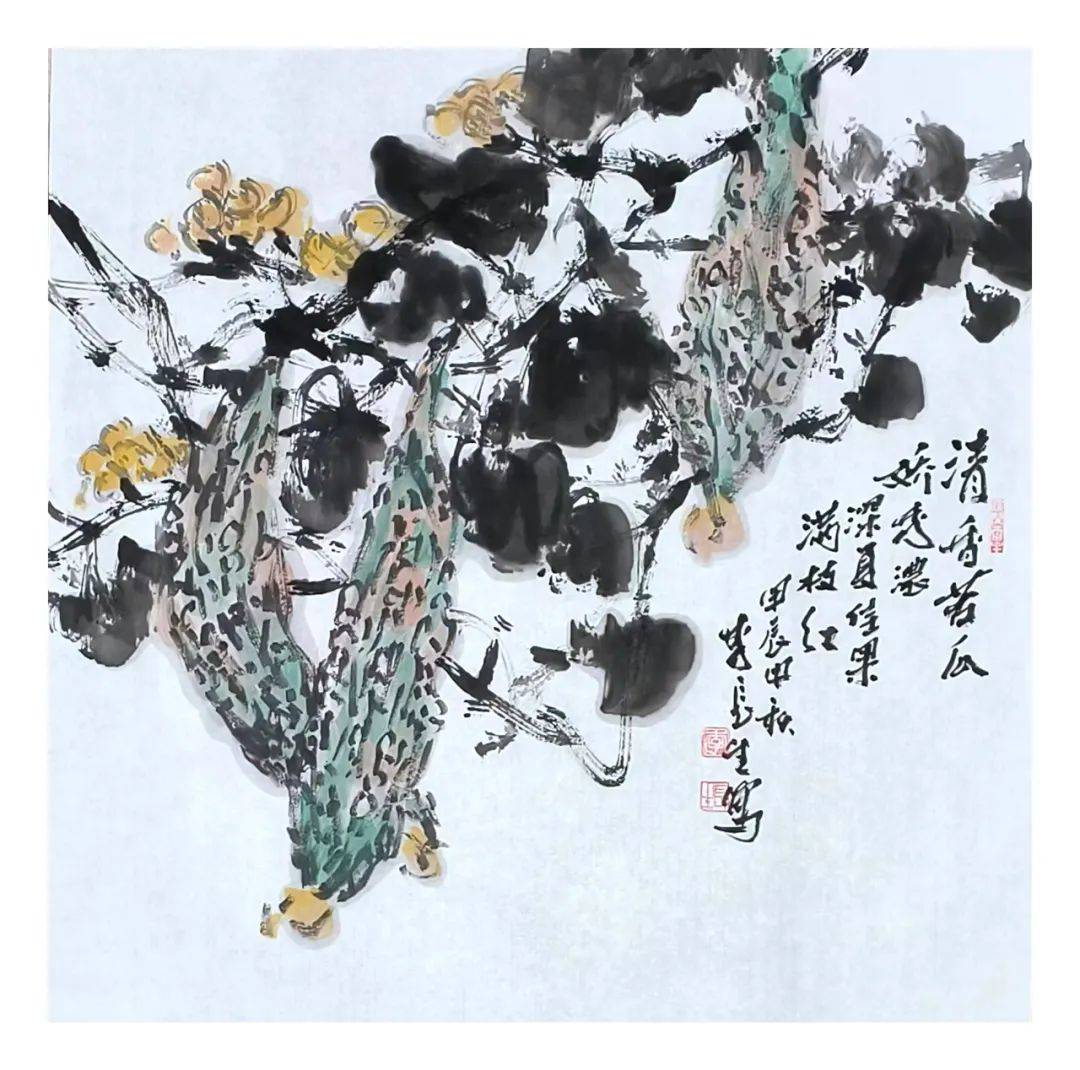 清香苦瓜
娇秀浓
深夏佳果
满枝红
甲辰秋
李長生寫